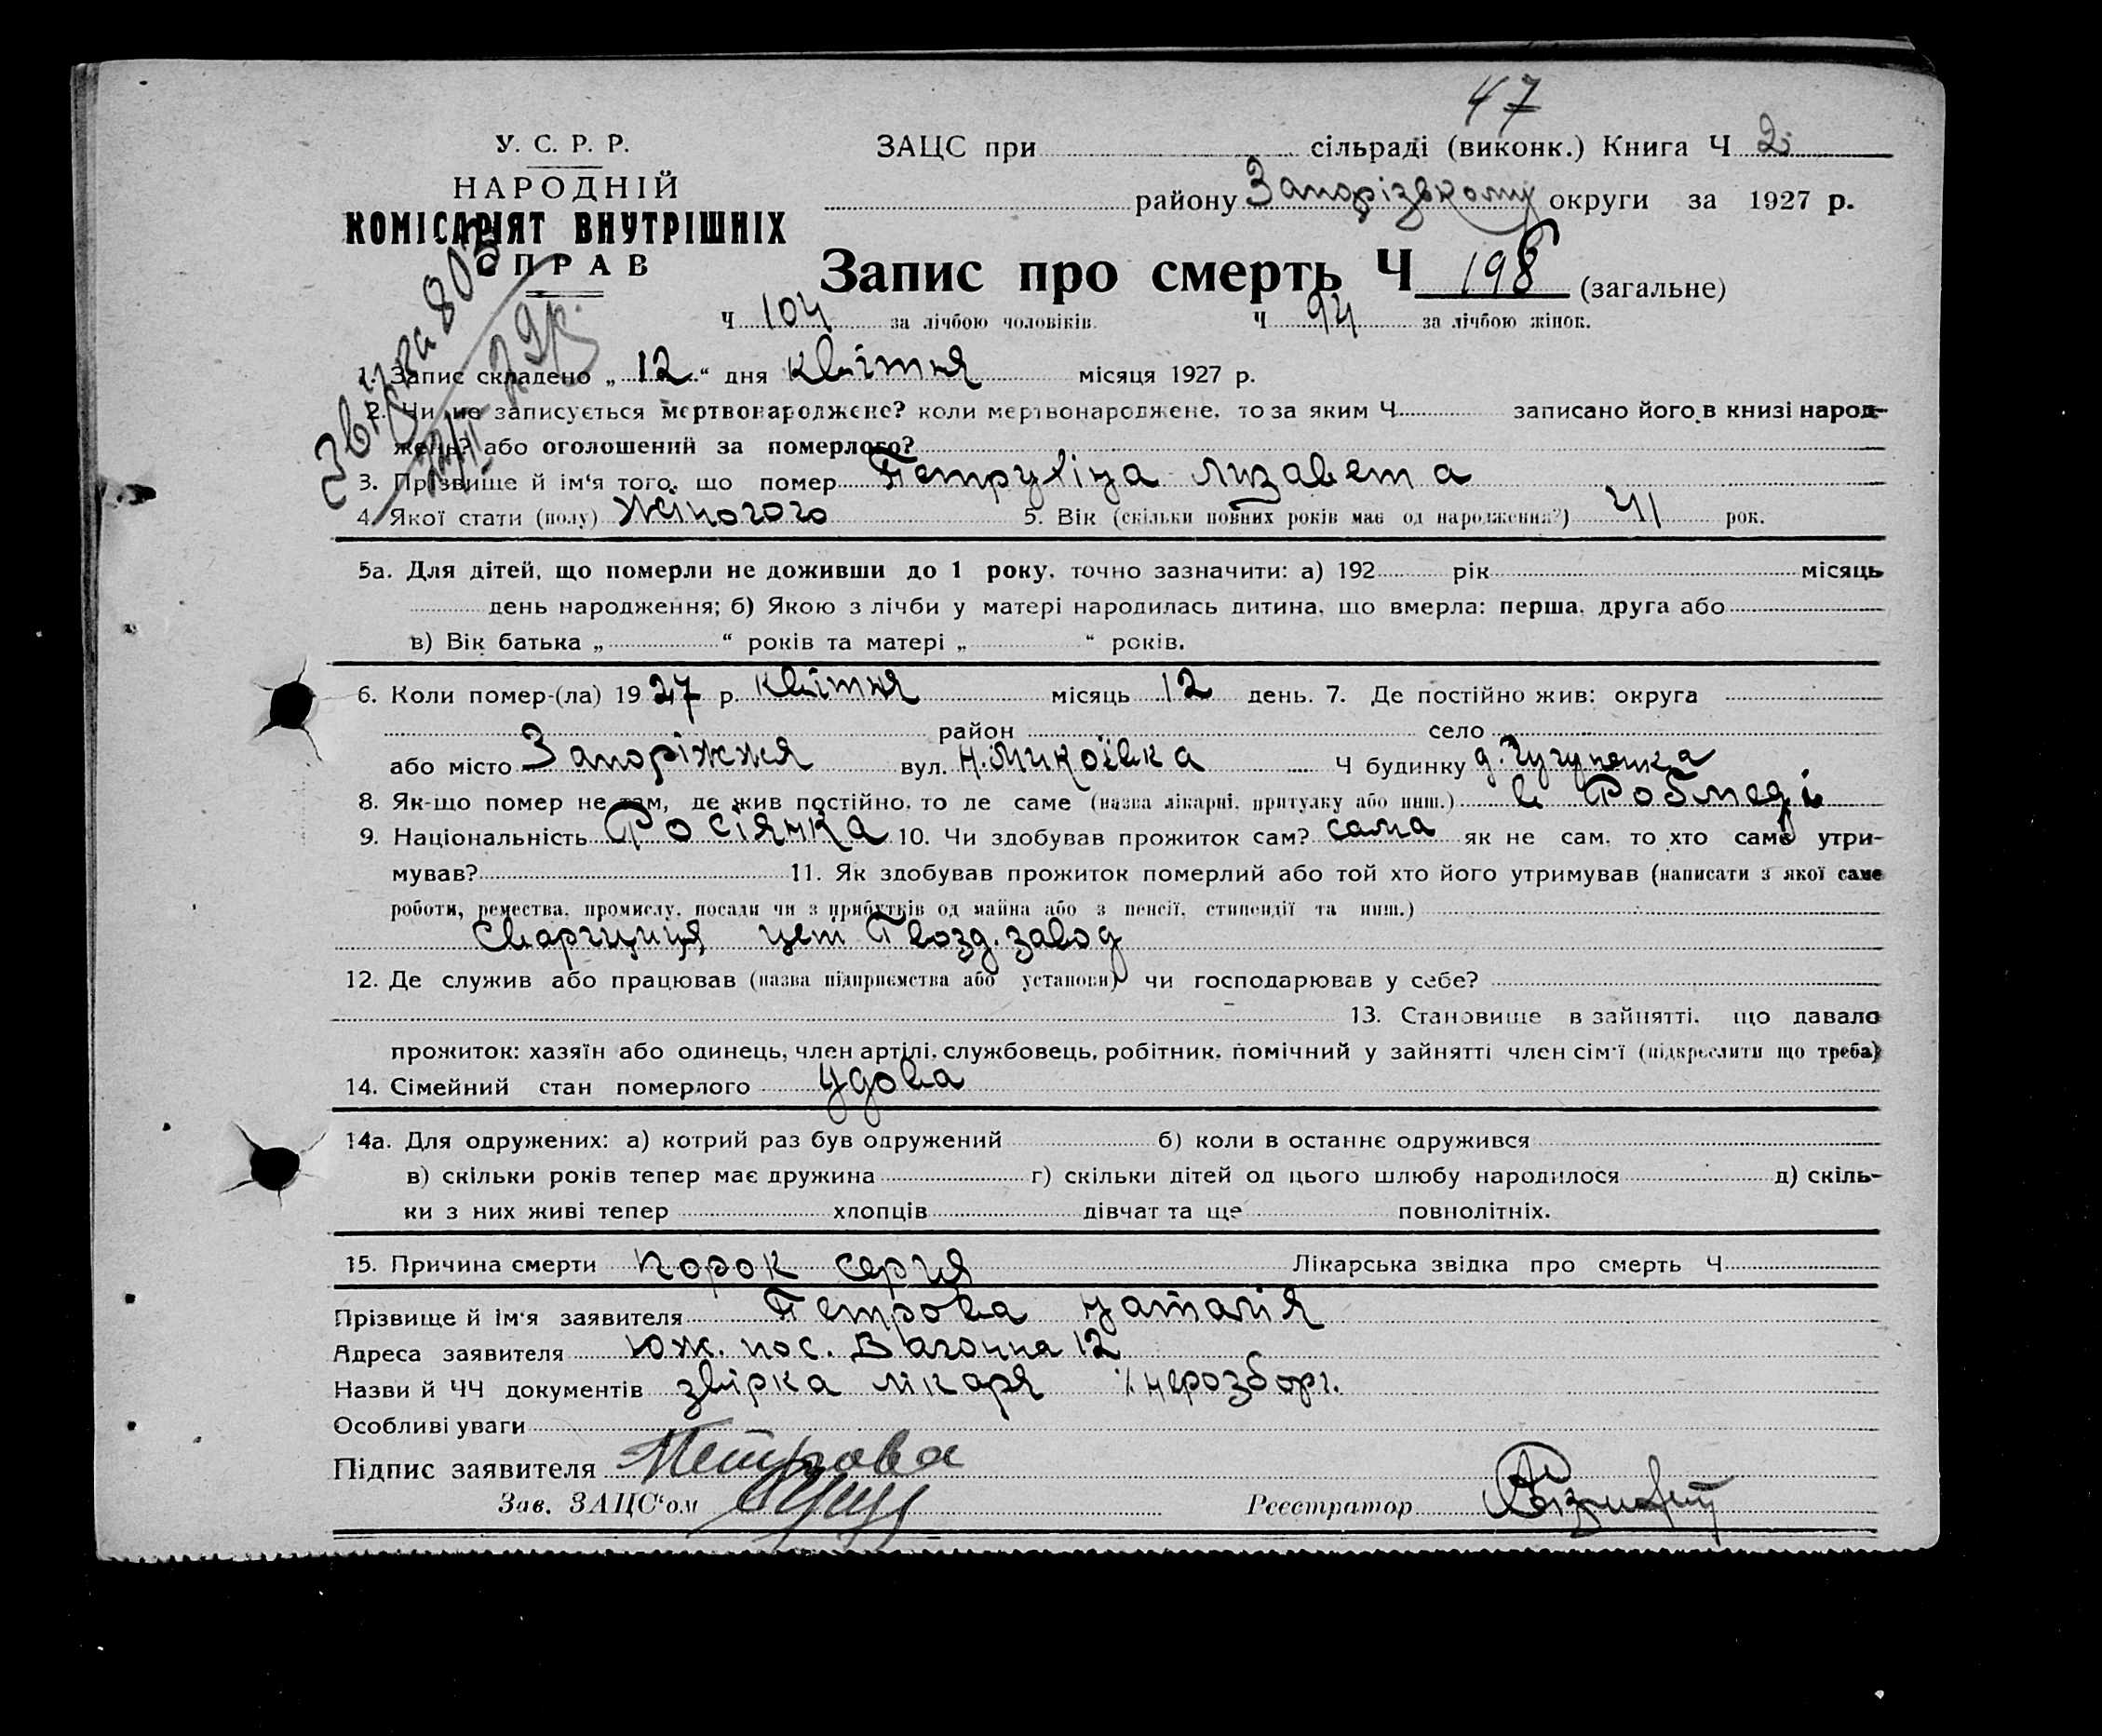 47
У. С. Р. Р.
НАРОДНІЙ
КОМІСАРІЯТ ВНУТРІШНІХ
СПРАВ
ЗАЦС при сільраді (виконк.) Книга Ч 2
району Запорізькому округи за 1927 р.
Запис про смерть Ч 198 (загальне)
Ч 104 за лічбою чоловіків. Ч 94 за лічбою жінок.
1. Запис складено „ 12 “ дня квітня місяця 1927 р.
2. Чи не записується мертвонароджене? коли мертвонароджене, то за яким Ч записано його в книзі народ-
жень? або оголошений за померлого?
3. Прізвище й ім‘я того, що помер Петрухіна Лизавета
4. Якої стати (полу) Жіночого 5. Вік (скільки повних років має од народження?) 41 рок.
5а. Для дітей, що померли не доживши до 1 року, точно зазначити: а) 192 рік місяць
день народження; б) Якою з лічби у матері народилась дитина, що вмерла: перша, друга або
в) Вік батька „ “ років та матері „ “ років.
6. Коли помер-(ла) 1927 р. квітня місяць 12 день. 7. Де постійно жив: округа
район село
або місто Запоріжжя вул. Н. Миколівка Ч будинку д.
8. Як-що помер не там, де жив постійно, то де саме (назва лікарні, притулку або инш.) в Робмеді
9. Національність Росіянка 10. Чи здобував прожиток сам? сама як не сам, то хто саме утри-
мував? 11. Як здобував прожиток померлий або той хто його утримував (написати з якої саме
роботи, ремества, промислу, посади чи з прибутків од майна або з пенсії, стипендії та инш.)
Гвозд. завод
12. Де служив або працював (назва підприємства або установи) чи господарював у себе?
13. Становище в зайнятті, що давало
прожиток: хазяїн або одинець, член артілі, службовець, робітник, помічний у зайнятті член сім‘ї (підкреслити що треба)
14. Сімейний стан померлого удова
14а. Для одружених: а) котрий раз був одружений б) коли в останнє одружився
в) скільки років тепер має дружина г) скільки дітей од цього шлюбу народилося д) скіль-
ки з них живі тепер хлопців дівчат та ще повнолітніх.
15. Причина смерти порок серця Лікарська звідка про смерть Ч
Прізвище й ім‘я заявителя Петрова Наталія
Адреса заявителя Юж. пос. Вагонна 12
Назви й ЧЧ документів звірка лікаря нерозборч.
Особливі уваги
Підпис заявителя Петрова
Зав. ЗАЦС‘ом Реєстратор